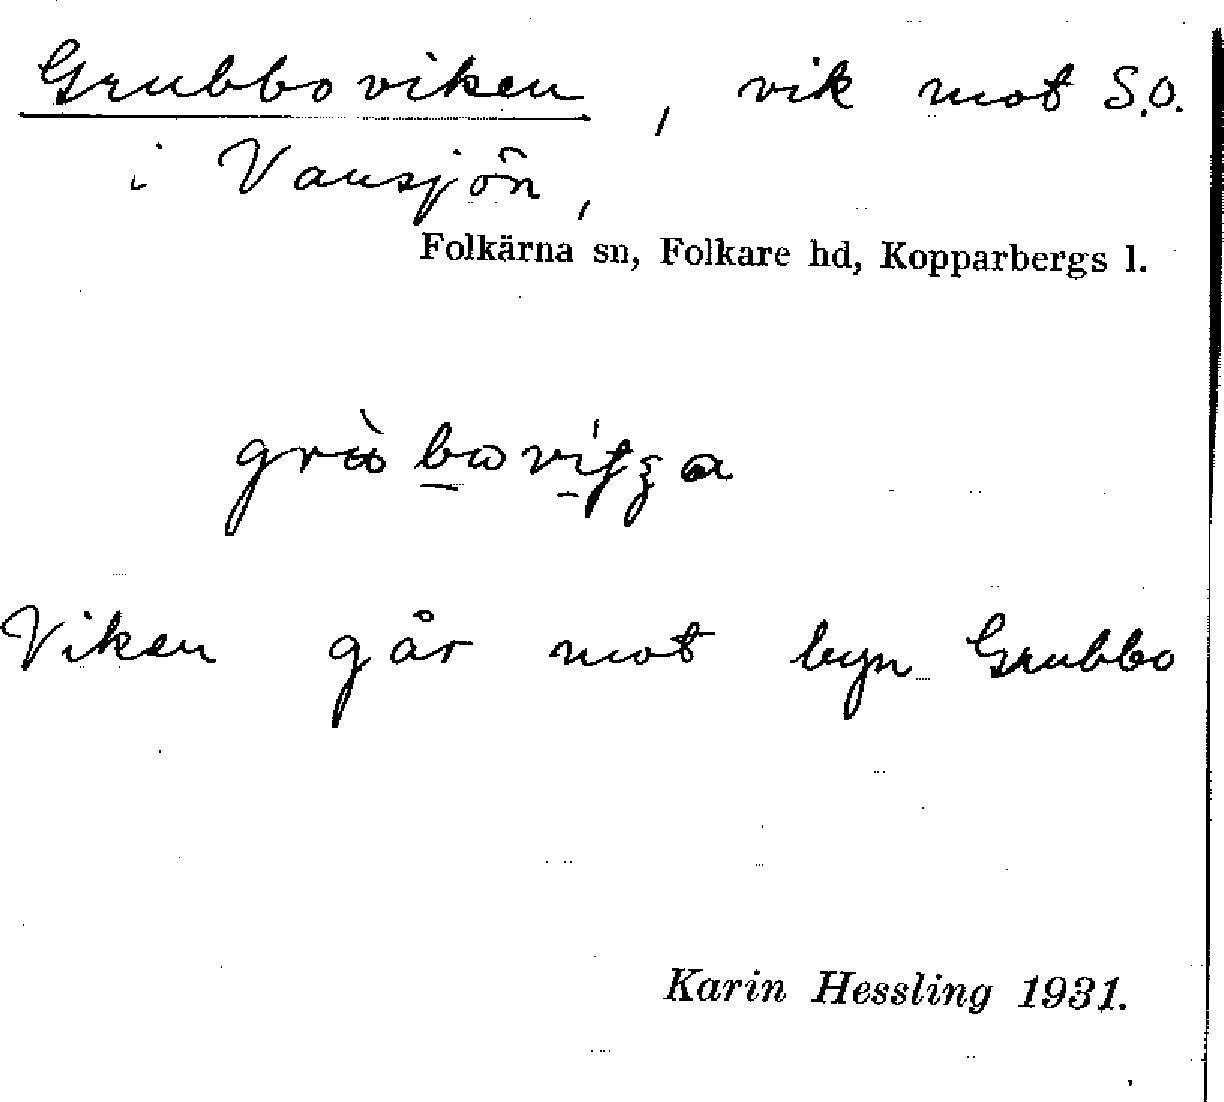 Grubboviken, vik mot S.O.
i Vansjön,
Folkärna sn, Folkare hd, Kopparbergs l.
Viken går mot byn Grubbo
Karin Hessling 1931.